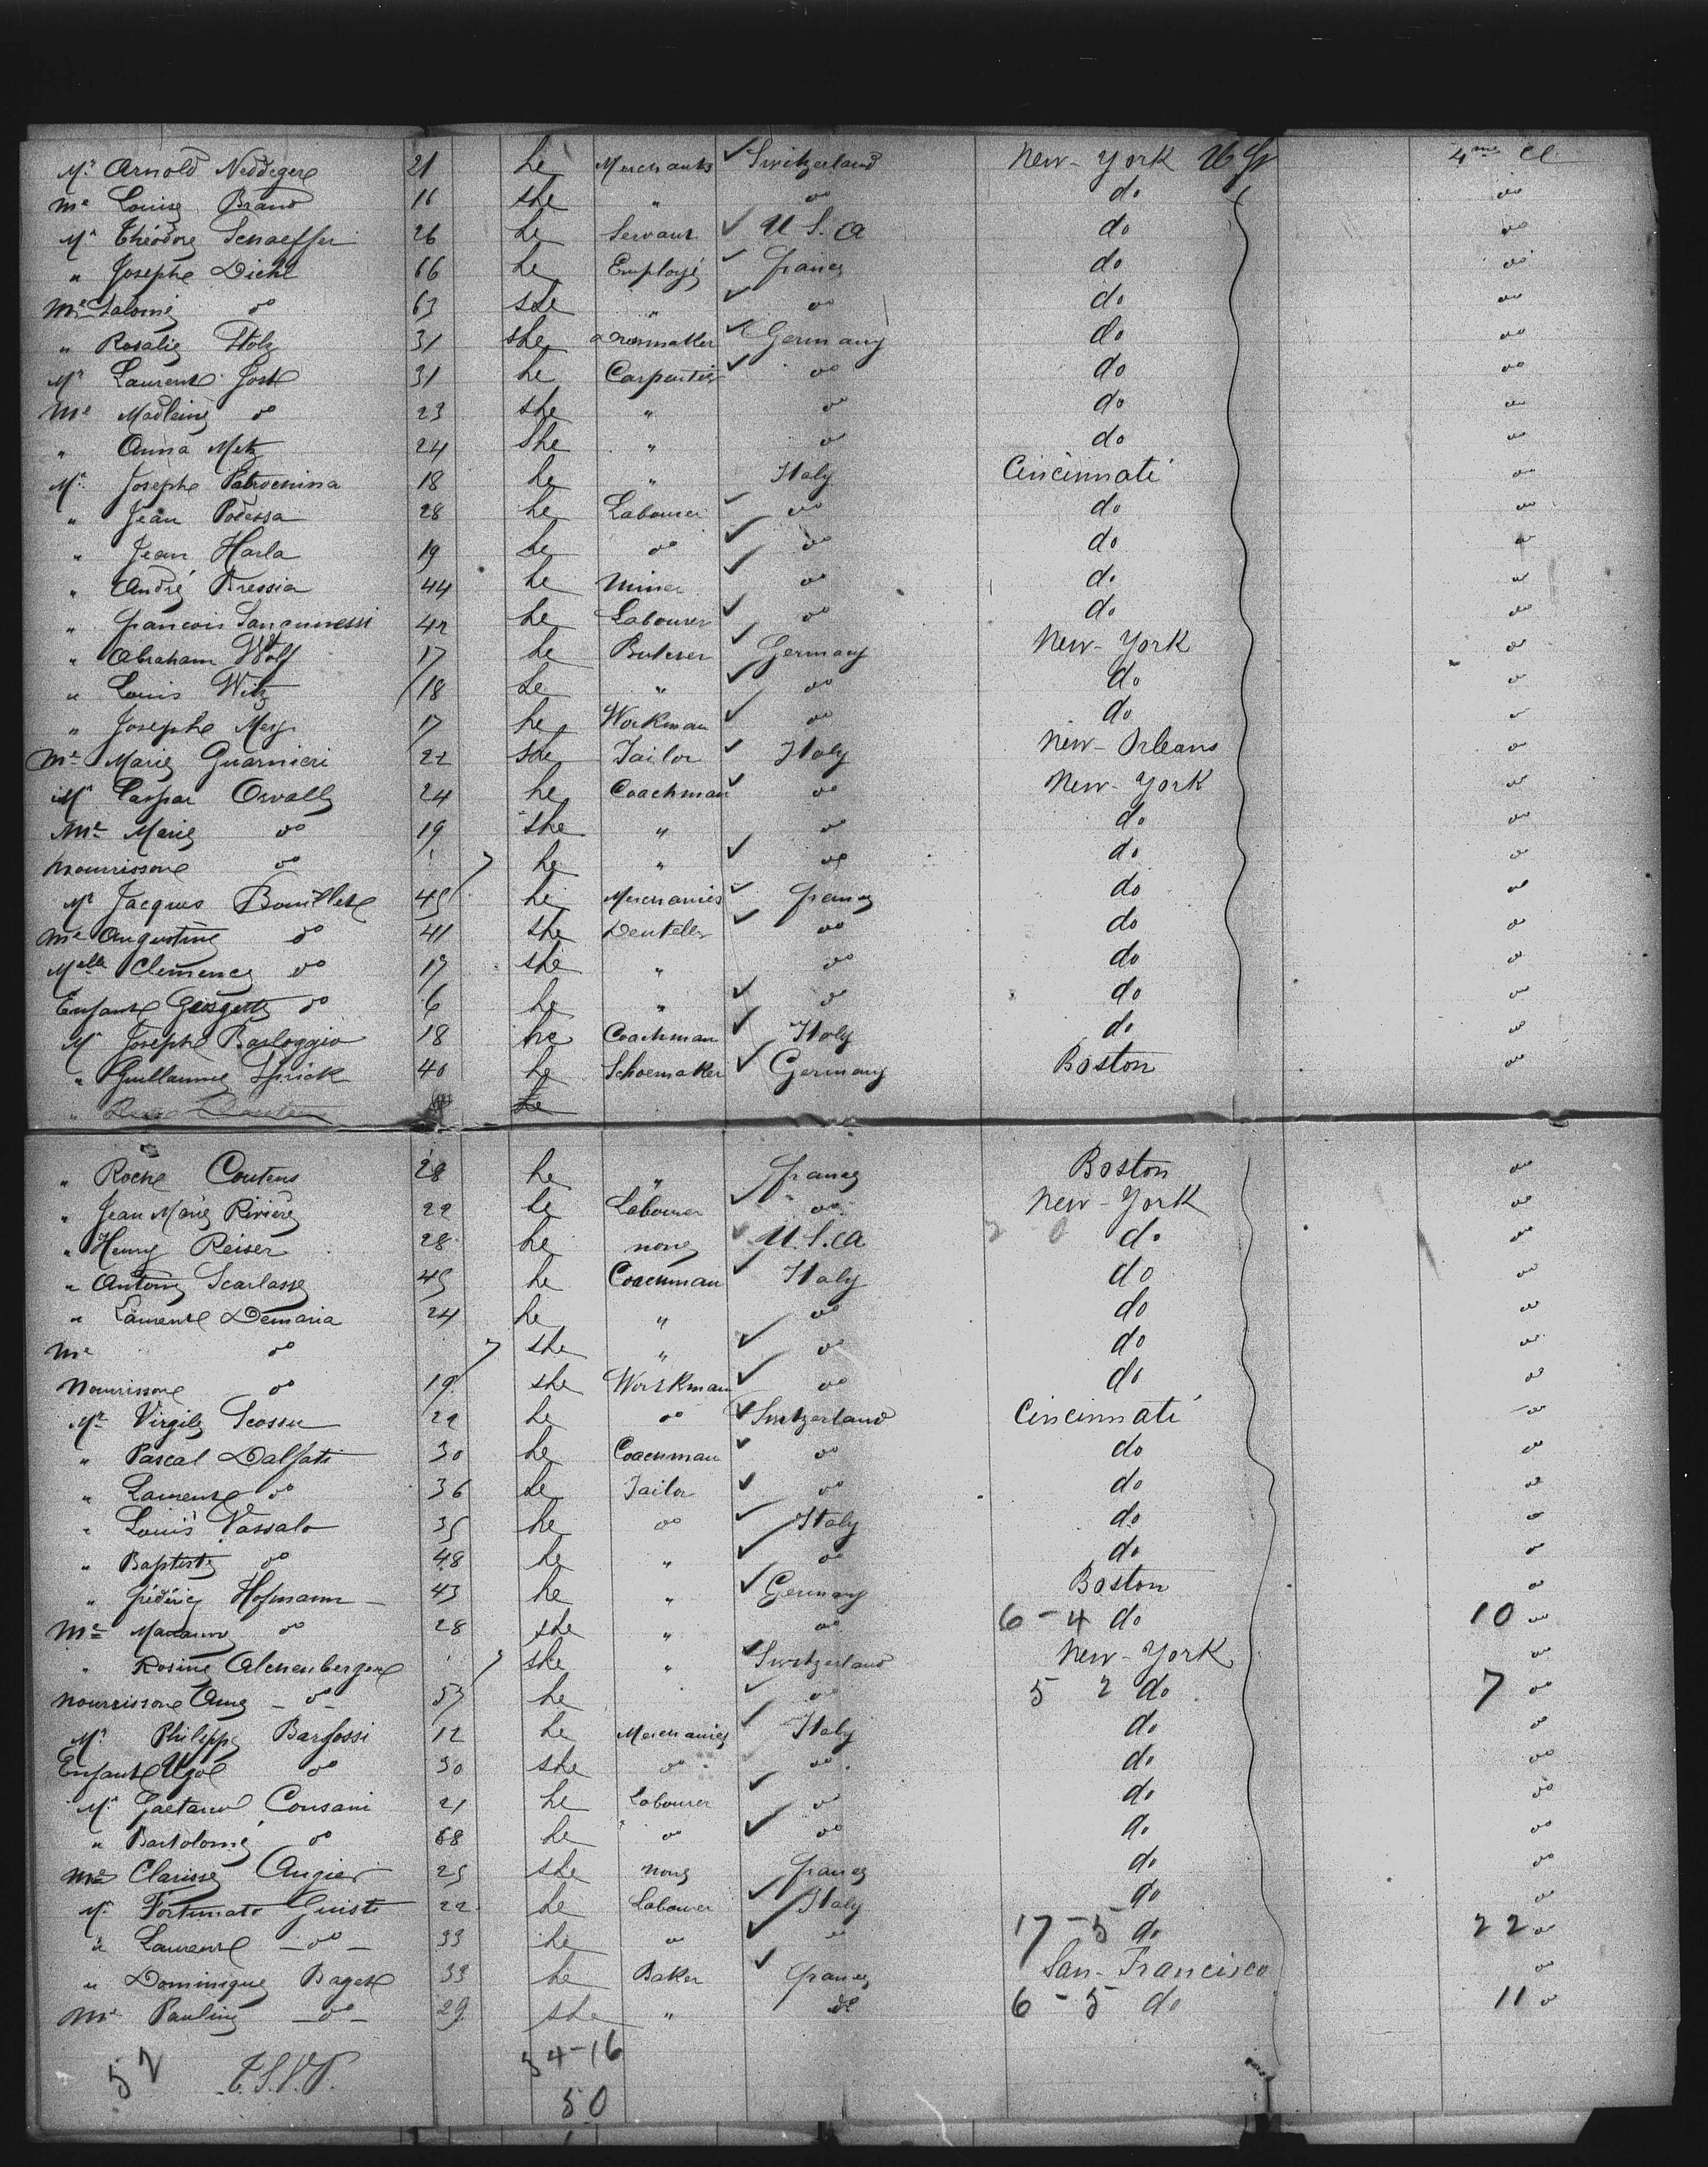 Mr Arnold 21 he Merchants Switzerland New-York 4me Cl.
Me Louise Brand 16 she " do do do
Mr Théodore Schaeffer 26 he Servant U.S.a do do
" Josephe Diehl 66 he Employé france do do
Me Salomé do 63 she " do do do
" Rosalie Stolz 31 she Germany do do
Mr Laurent Jost 31 he Carpentier do do do
Me Madleine do 23 she " do do do
" Anna Metz 24 she " do do do
Mr Josephe 18 he " Italy Cincinnati do
" Jean Podessa 28 he Labourer do do do
" Jean Harla 19 he do do do do
" André Bressia 44 he Miner do do do
" francois 42 he Labourer do do do
" Abraham Wolf 17 he Butcher Germany New-York do
" Louis Witz 18 he " do do do
" Josephe Mey 17 he Workman do do do
Me Marie Guarnieri 22 she Tailor Italy New-Orleans do
Mr Gaspar Osvalle 24 he Coachman do New-York do
Me Marie do 19 she " do do do
nourrissone do he " do do do
Mr Jacques Bouillet 45 he france do do
Me Augustine do 41 she do do do
Melle Clemence do 17 she " do do do
Enfant Georgette do 6 he " do do do
Mr Josephe Barloggio 18 he Coachman Italy do do
" Guillaume Sprick 40 he Schoemaker Germany Boston do
" Roche Coutens 28 he " france Boston do
" Jean Marie Rivière 22 he Labourer do New-York do
" Henry Reiser 28 he none U.S.a do do
" Antoine Scarlasse 45 he Coachman Italy do do
" Laurent Demaria 24 he " do do do
Me do she " do do do
Nourrissone do 19 she Workman do do do
Mr Virgile Scossa 22 he do Switzerland Cincinnati do
" Pascal Dalfati 30 he Coachman do do do
" Laurent do 36 he Tailor do do do
" Louis Vassalo 35 he do Italy do do
" Baptiste do 48 he " do do do
" fréderic Hofmann 43 he " Germany Boston do
Me do 28 she " do 6-4 do 10 do
" Rosine Alchenberger she " Switzerland New-York do
nourrissone do 57 he do 5 2 do 7 do
Mr Philippe Bargossi 12 he Italy do do
Enfant Ugo do 30 she do do do do
Mr Gaetano Consani 21 he Labourer do do do
" Bartolomé do 68 he do do do do
Me Clarisse Augier 25 she none france do do
Mr Fortunato Guisti 22 he Labourer Italy do do
" Laurent do 33 he do do 17-5 do 22 do
" Dominique Baget 33 he Baker france San-Francisco do
Me Pauline do 29 she " do 6-5 do 11 do
52 T.S.V.P. 34-16
50